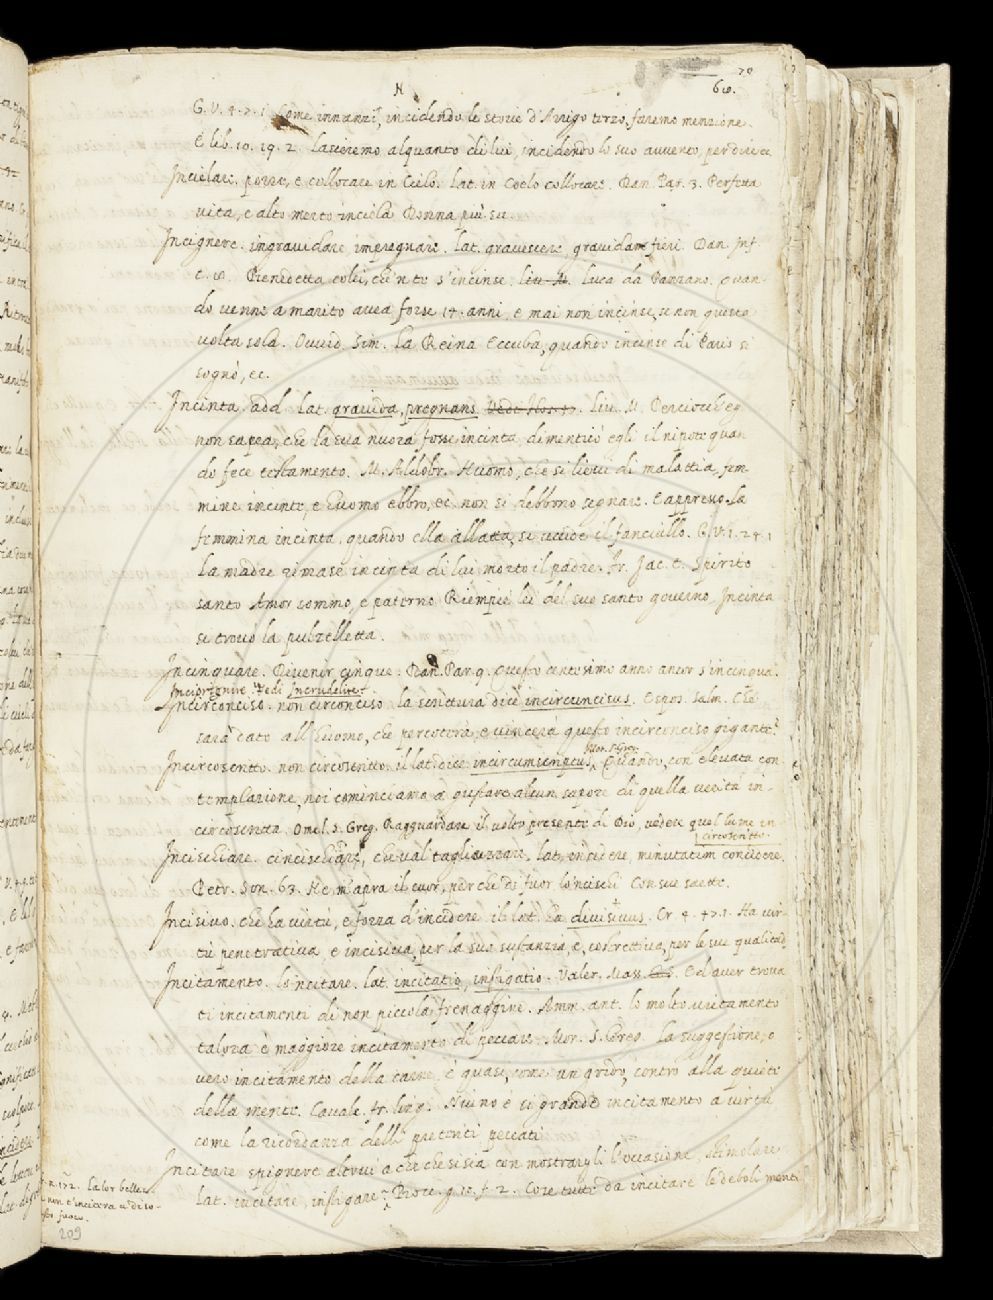 N
70
60.
G. V. 4. 7. 1. Come innanzi, incidendo le storie d'Arrigo terzo, faremo menzione.
E lib. 10. 19. 2. Lasceremo alquanto di lui, incidendo lo suo avvento, per dire ec.
Incielare. porre, e collocare in Cielo. Lat. in Coelo collocare. Dan. Par. 3. Perfetta
vita, e alto merto inciela Donna più su.
Incignere. ingravidare, impregnare. lat. gravescere, gravidam fieri. Dan. Inf.
c. 8. Benedetta colei, che 'n te s'incinse. liv. M. Luca da Panzano. Quan-
do venne a marito avea forse 14. anni, e mai non incinse, se non questa
volta sola. Ovvid. Sim. La Reina Eccuba, quando incinse di Paris si
sognò, ec.
Incinta. add. Lat. gravida, pregnans. liv. M. Perciocch' eg
non sapea, che la sua nuora fosse incinta, dimenticò egli il nipote quan
do fece testamento. M. Aldobr. Huomo, che si lievi di malattia, fem
mine incinte, e huomo ebbro, ec. non si debbono segnare. E appresso. La
femmina incinta, quando ella allatta, si uccide il fanciullo. G. V. 1. 24. 1
La madre rimase incinta di lui morto il padre. Fr. Jac. T. Spirito
santo Amor sommo, e paterno Riempiè lei del suo santo governo, Incinta
si trovò la pulzelletta.
Incinquare. Divenir cinque. Dan. Par. 9. Questo centesimo anno ancor s'incinqua.
Vedi Incrudelire.
Incirconciso. non circonciso. la scrittura dice incircuncisus. Espos. Salm. Che
sarà dato all' huomo, che percoterà, e vincerà questo incirconciso gigante?
Incircoscritto. non circoscritto. il lat. dice incircumscriptus. Mor. S. Greg. Quando, con elevata con
templazione, noi cominciamo a gustare alcun sapore di quella verità in-
circoscritta. Omel. S. Greg. Ragguardare il volto presente di Dio, vedere quel lume in
circoscritto.
Incischiare. cincischiare, che val tagliuzzare. Lat. incidere, minutatim concidere.
Petr. Son. 63. Ne m'apra il cuor, perche di fuor l'incischi Con sue saette.
Incisivo. che ha virtù, e forza d'incidere. il lat. ha divisivus. Cr. 4. 47. 1. Ha vir-
tù penetrativa, e incisiva, per la sua sustanzia, e, costrettiva, per le sue qualitad
Incitamento. lo'ncitare. lat. incitatio, instigatio. Valer. Mass. Ed aver trova
ti incitamenti di non piccola frenaggine. Amm. ant. lo molto incitamento
talora è maggiore incitamento di peccare. Mor. S. Greg. La suggestione, o
vero incitamento della carne, è quasi, come un grido, contro alla quiete
della mente. Cavalc. fr. ling. Niuno è si grande incitamento a virtù
come la ricordanza delli preteriti peccati.
Incitare. spignere altrui a che che si sia con mostrargli l'occasione, stimolare
Lat. incitare, instigare. Bocc. g. 10. f. 2. Cose tutte da incitare le deboli menti
n. 172. La lor bellez-
non t'incitera a diso-
sto fuoco.
209